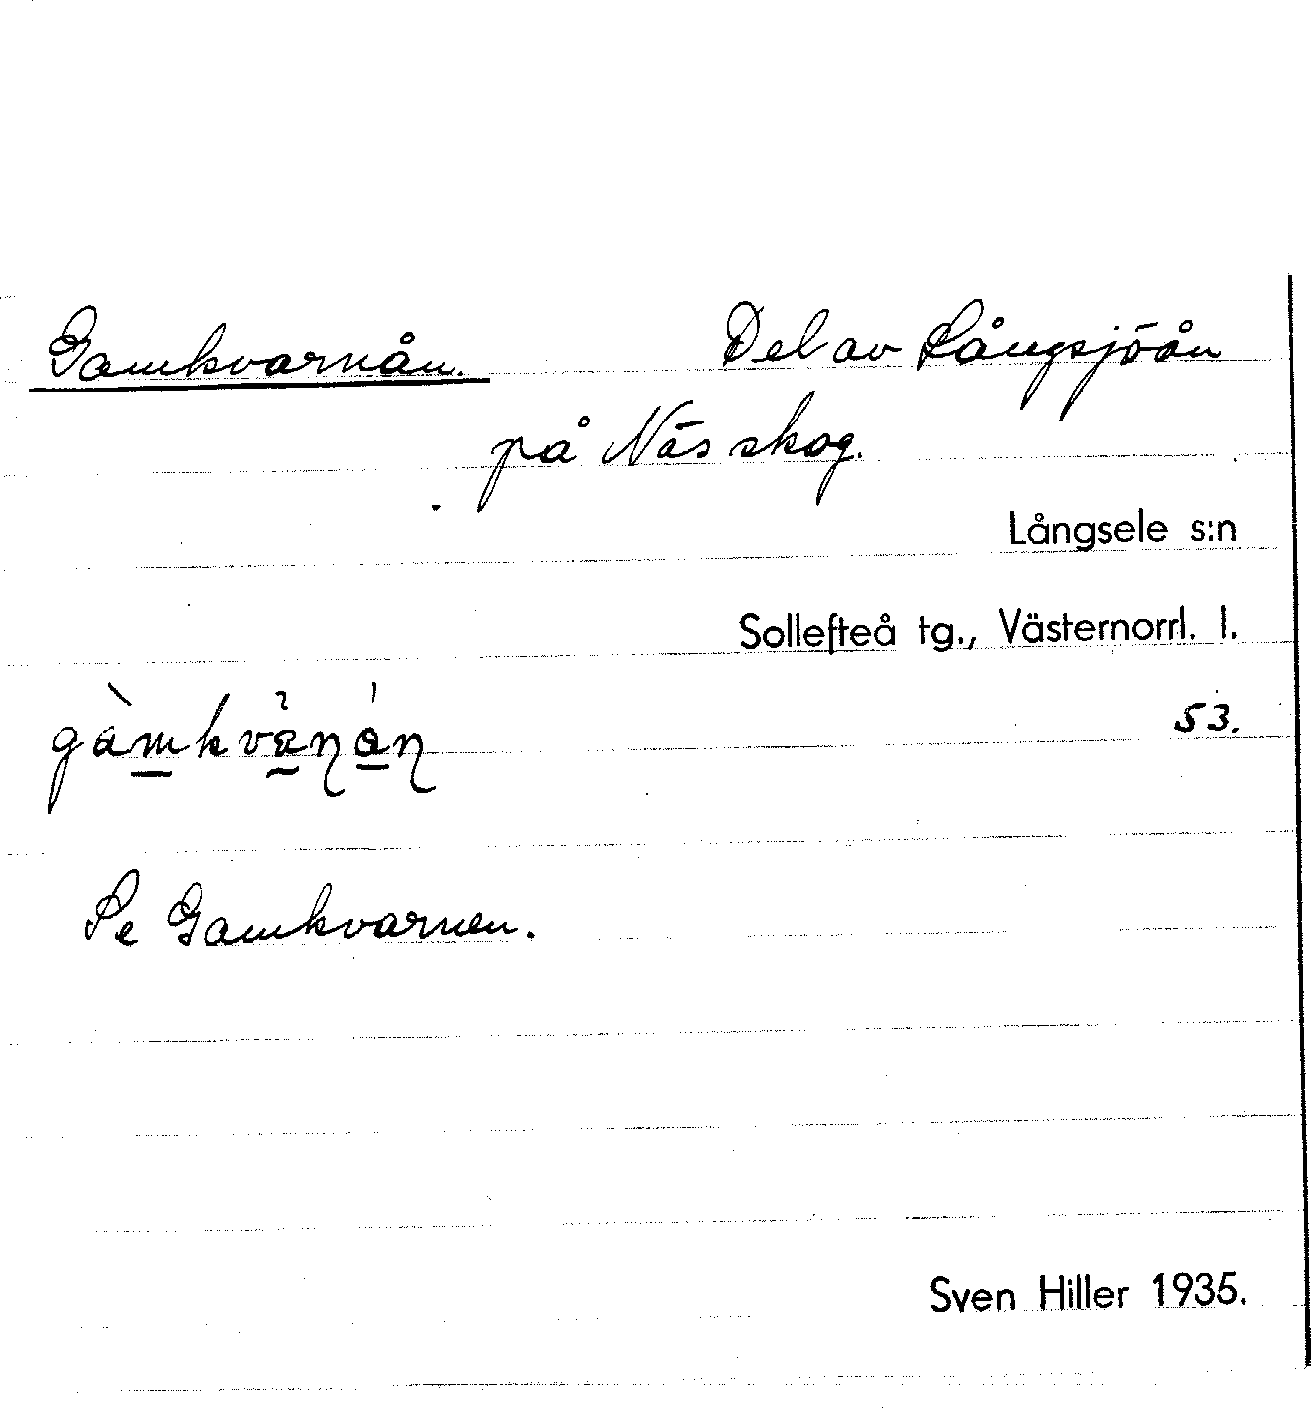 Gamkvarnån. Del av Långsjöån
på Näs skog.
Långsele s:n
Sollefteå tg., Västernorrl. l.
53.
Se Gamkvarnen.
Sven Hiller 1935.